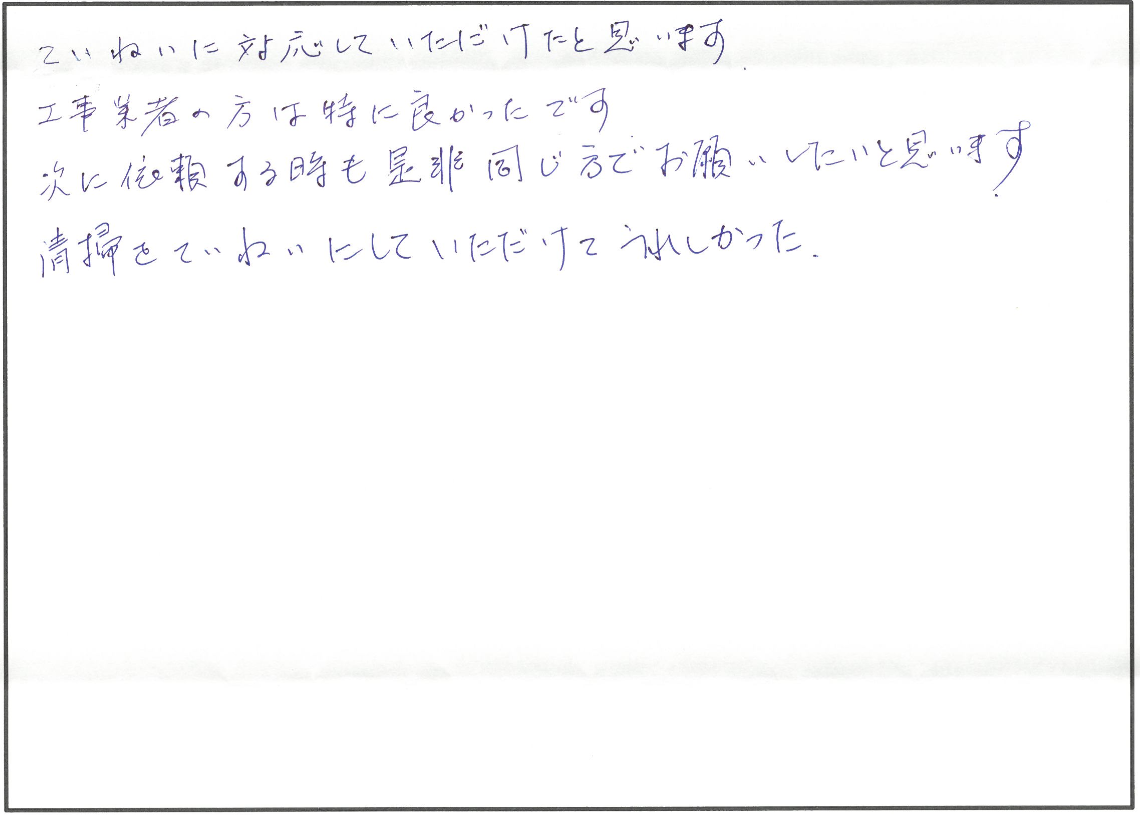 ていねいに対応していただけたと思います.
工事業者の方は特に良かったです
次に依頼する時も是非同じ方でお願いしたいと思います.
清掃をていねいにしていただけてうれしかった.